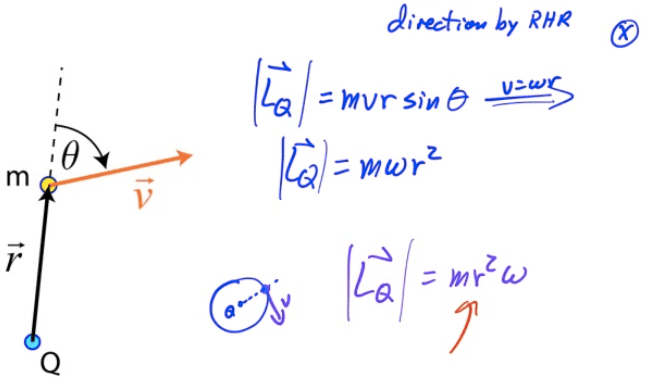 direction by RHR ⊗
|L⃗_Q| = mvr sin θ ⟹ v=ωr
|L⃗_Q| = mωr²
θ
m
v⃗
r⃗
|L⃗_Q| = mr²ω
Q v
Q